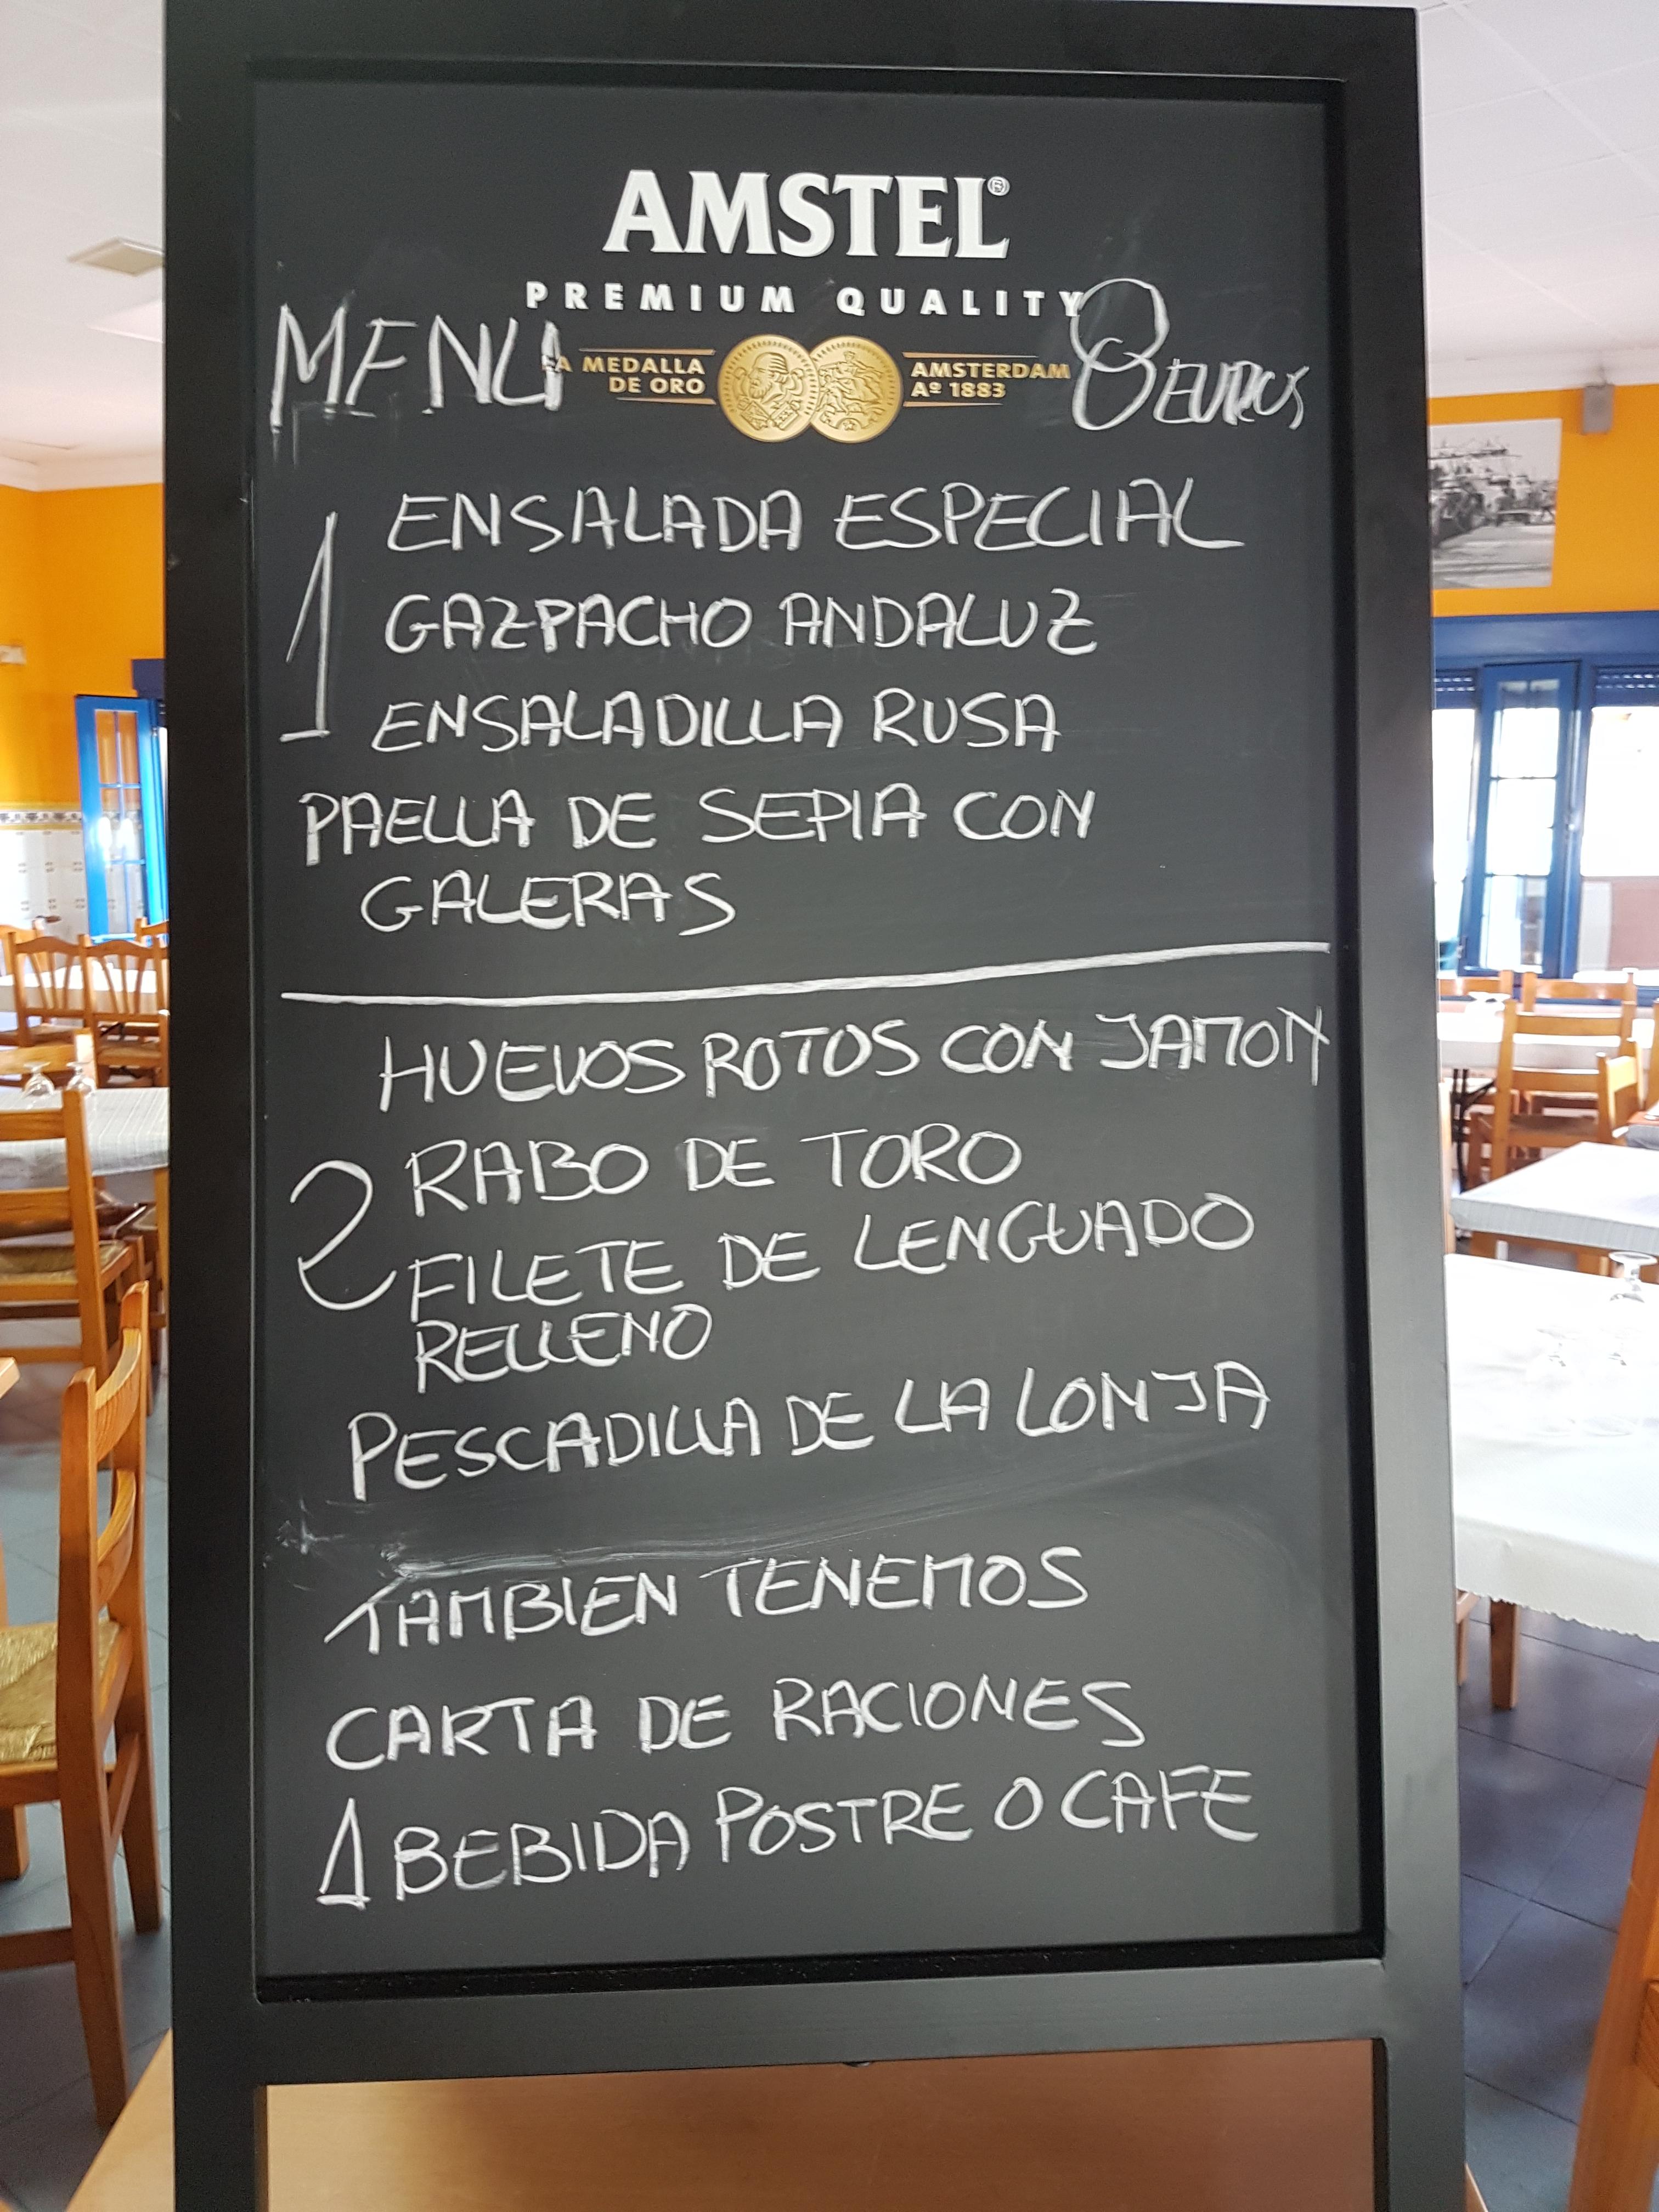 AMSTEL®
PREMIUM QUALITY
MENU 8 EUROS
MEDALLA AMSTERDAM
DE ORO Aº 1883
ENSALADA ESPECIAL
1 GAZPACHO ANDALUZ
ENSALADILLA RUSA
PAELLA DE SEPIA CON
GALERAS
HUEVOS ROTOS CON JAMON
2 RABO DE TORO
FILETE DE LENGUADO
RELLENO
PESCADILLA DE LA LONJA
TAMBIEN TENEMOS
CARTA DE RACIONES
1 BEBIDA POSTRE O CAFE